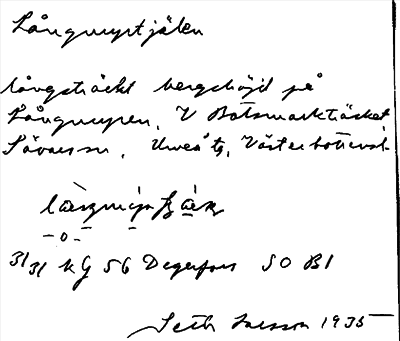 Långmyrtjälen
långsträckt bergshöjd på
Långmyren, V Botsmarkträsket
Sävar sn, Umeå tg, Västerbotten
31/31 kG 56 Degerfors SO B1
Seth Larsson 1935